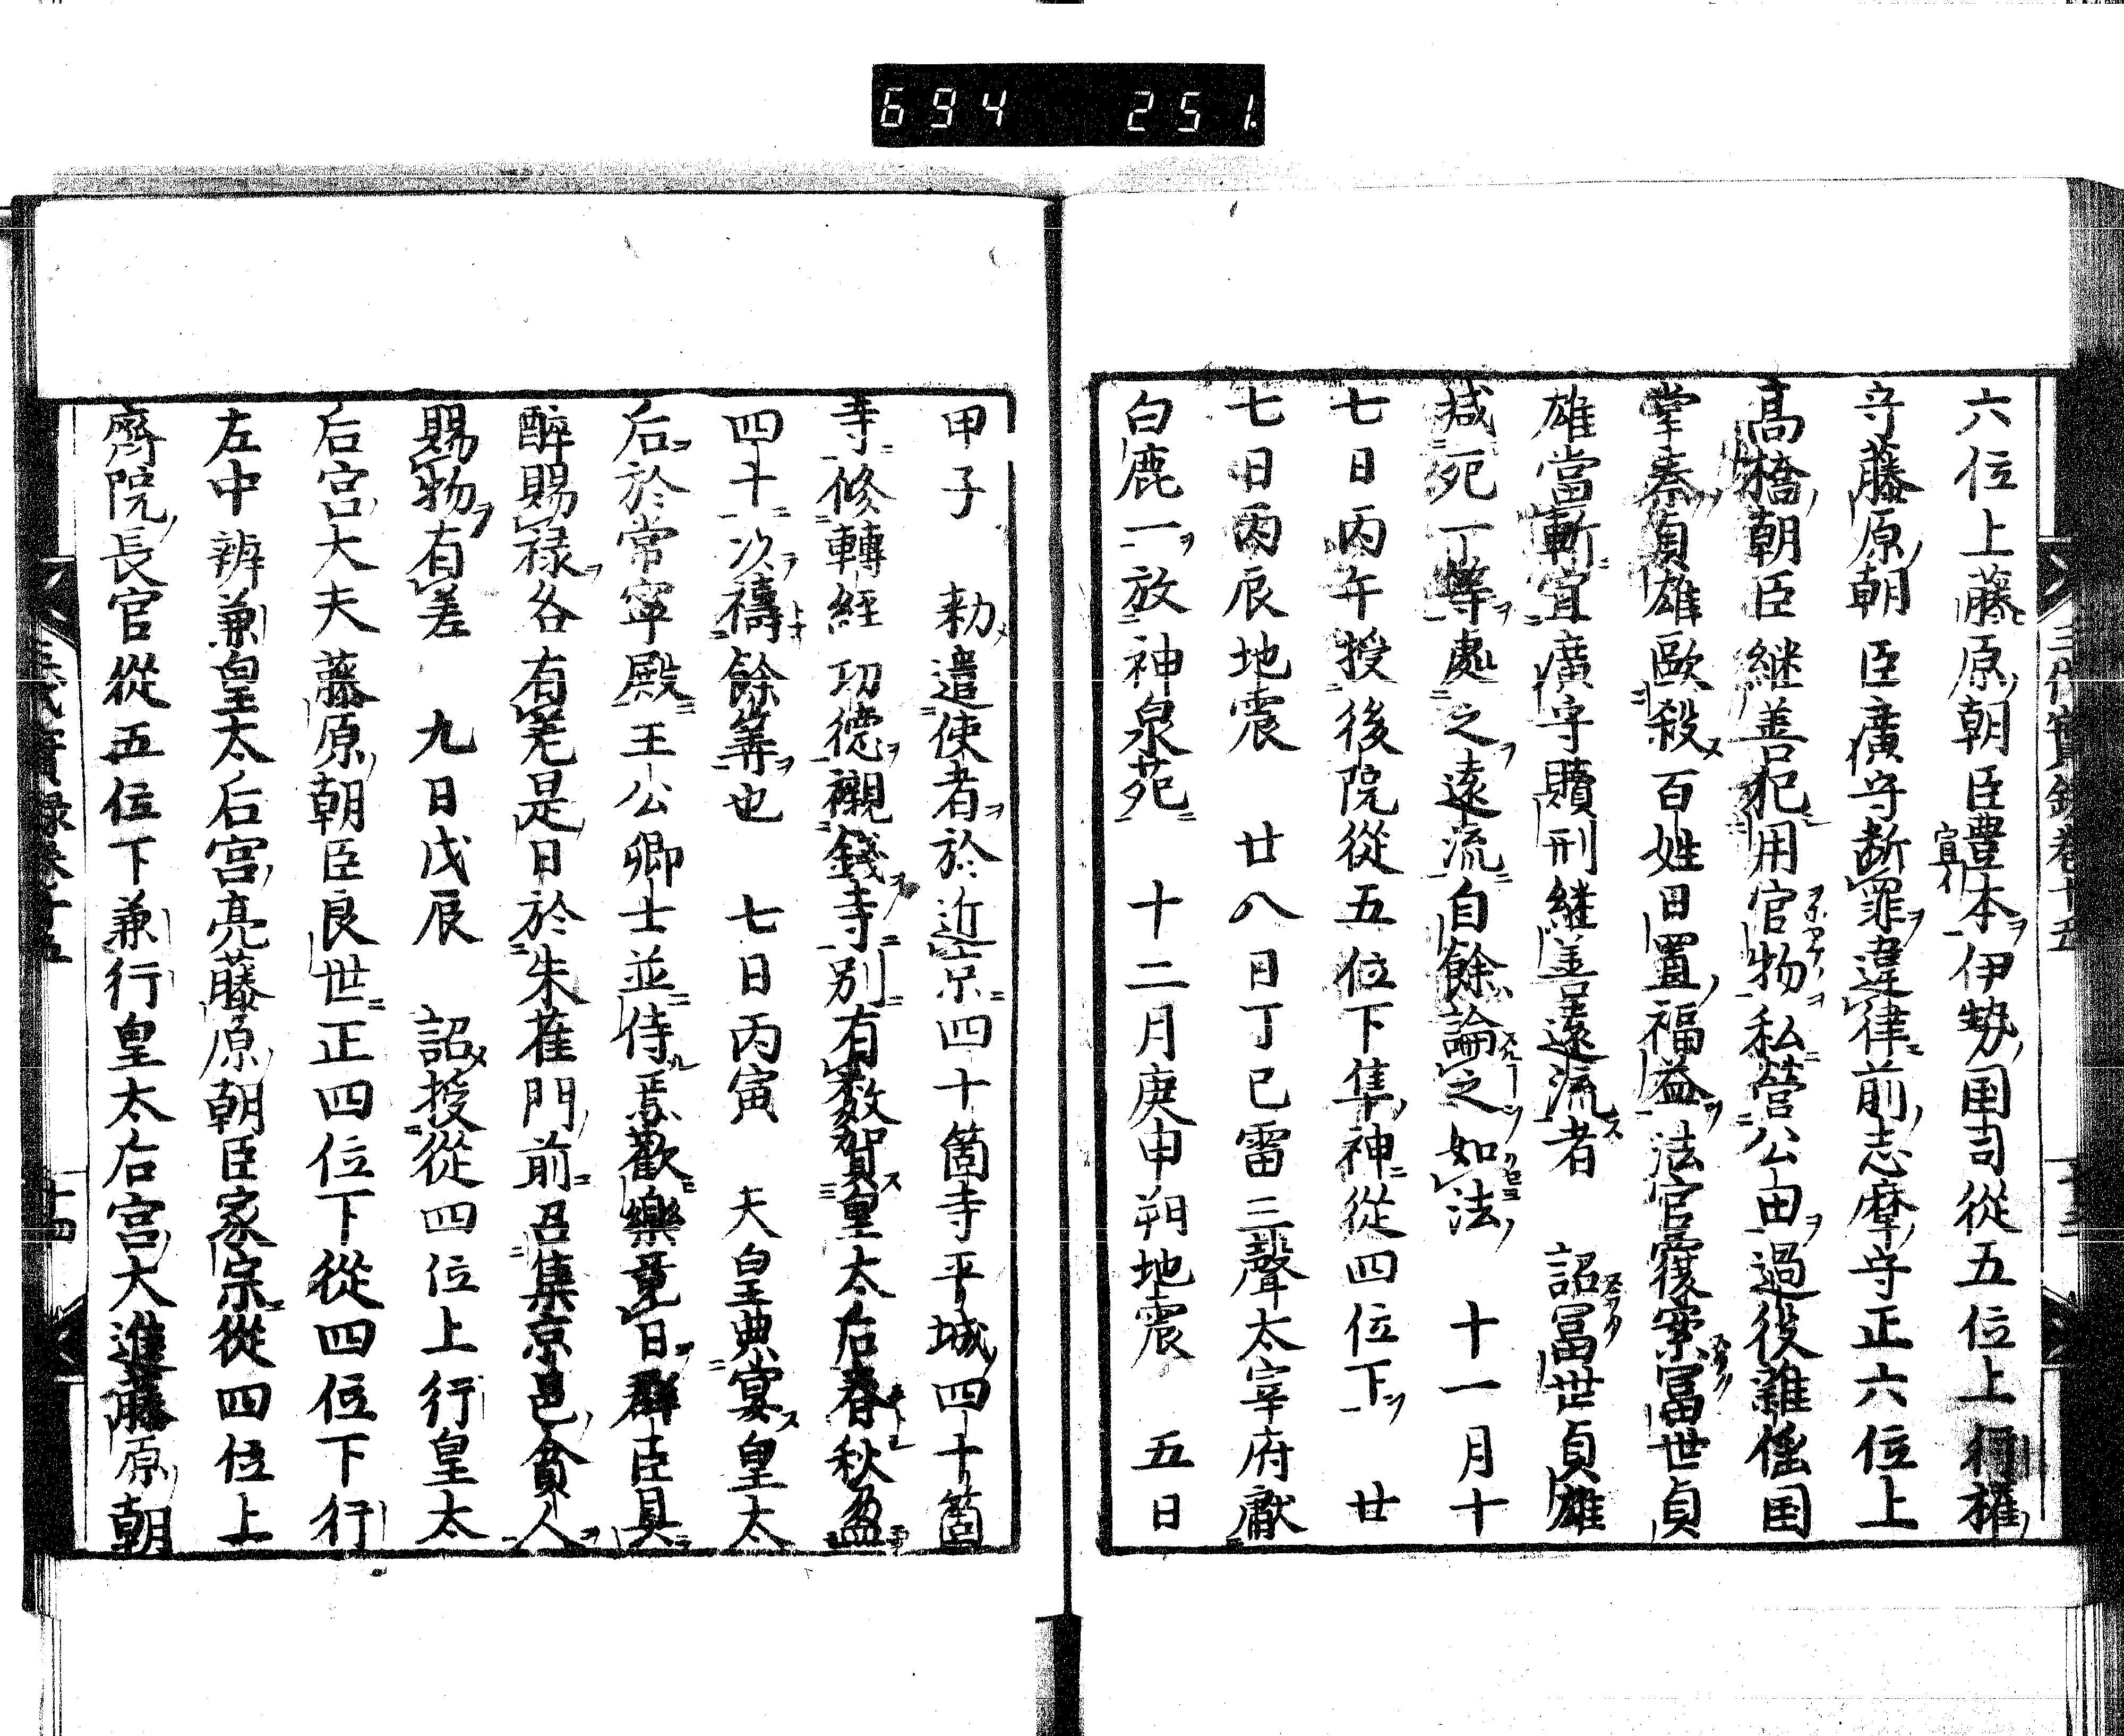 694 251
六位上藤原朝臣豐本伊勢国司從五位上行權
守藤原朝臣廣守断罪違律前志摩守正六位上
髙橋朝臣継善犯用官物私營公田過役雜徭国
掌秦貞雄毆殺百姓田置福益法官覆案冨世貞
雄當斬宜廣守贖刑継善遠流者 詔冨世貞雄
减死一等處之遠流自餘論之如法 十一月十
七日丙午授後院從五位下隼神從四位下 廿
七日丙辰地震 廿八日丁巳雷三聲太宰府獻
白鹿一放神泉苑 十二月庚申朔地震 五日
甲子 勅遣使者於近京四十箇寺平城四十箇
寺修轉経功徳襯錢寺別有數賀皇太后春秋盈
四十次禱餘筭也 七日丙寅 天皇典宴皇太
后於常寧殿王公卿士並侍焉歡樂竟日群臣具
醉賜禄各有差是日於朱雀門前召集京邑貧人
賜物有差 九日戊辰 詔授從四位上行皇太
后宮大夫藤原朝臣良世正四位下從四位下行
左中辨兼皇太后宮亮藤原朝臣家宗從四位上
齊院長官從五位下兼行皇太后宮大進藤原朝